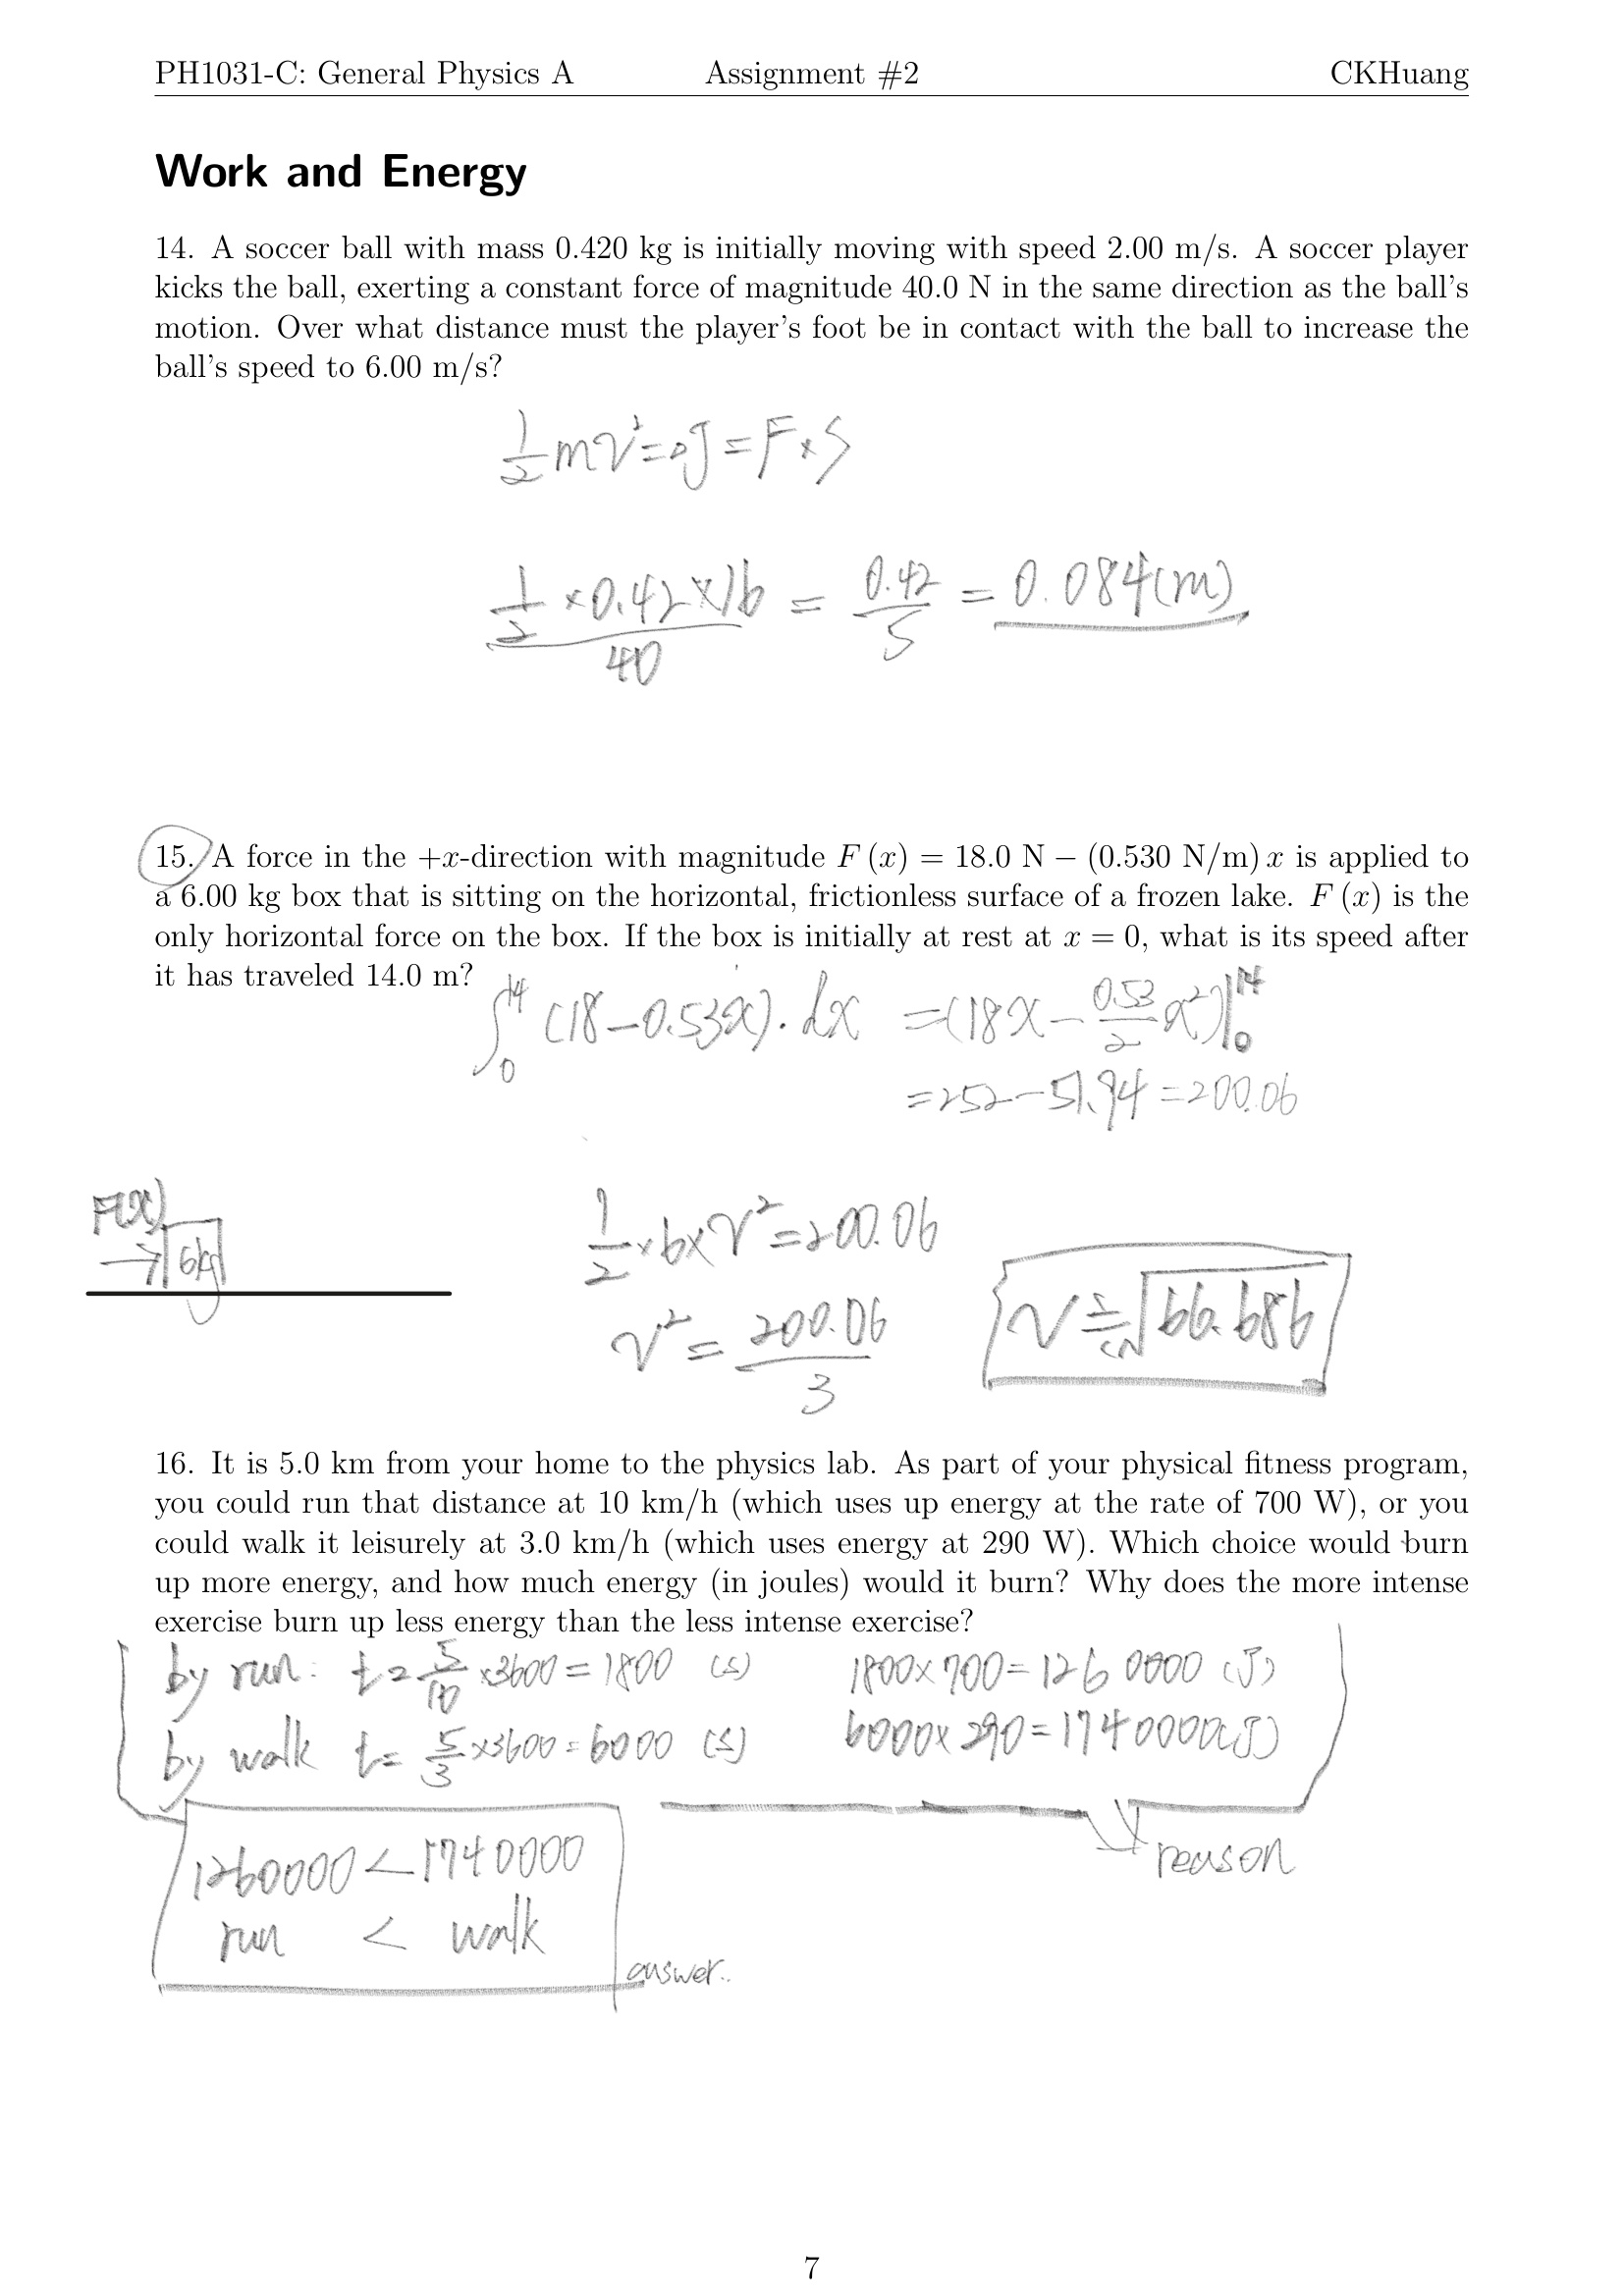 PH1031-C: General Physics A Assignment #2 CKHuang
Work and Energy
14. A soccer ball with mass 0.420 kg is initially moving with speed 2.00 m/s. A soccer player
kicks the ball, exerting a constant force of magnitude 40.0 N in the same direction as the ball's
motion. Over what distance must the player's foot be in contact with the ball to increase the
ball's speed to 6.00 m/s?
1/2 mv² = ΔJ = F × S
(1/2 × 0.42 × 16)/40 = 0.42/5 = 0.084(m)
15. A force in the +x-direction with magnitude F (x) = 18.0 N − (0.530 N/m) x is applied to
a 6.00 kg box that is sitting on the horizontal, frictionless surface of a frozen lake. F (x) is the
only horizontal force on the box. If the box is initially at rest at x = 0, what is its speed after
it has traveled 14.0 m?
∫₀¹⁴ (18−0.53x)·dx = (18x − 0.53/2 x²)|₀¹⁴
= 252 − 51.94 = 200.06
F(x)
→ 6kg
1/2 × 6 × v² = 200.06
v² = 200.06/3
v ≒ √66.686
16. It is 5.0 km from your home to the physics lab. As part of your physical fitness program,
you could run that distance at 10 km/h (which uses up energy at the rate of 700 W), or you
could walk it leisurely at 3.0 km/h (which uses energy at 290 W). Which choice would burn
up more energy, and how much energy (in joules) would it burn? Why does the more intense
exercise burn up less energy than the less intense exercise?
by run: t = 5/10 ×3600 = 1800 (s) 1800×700 = 1260000 (J)
by walk t = 5/3 ×3600 = 6000 (s) 6000×290 = 1740000(J)
reason
1260000 < 1740000
run < walk
answer..
7